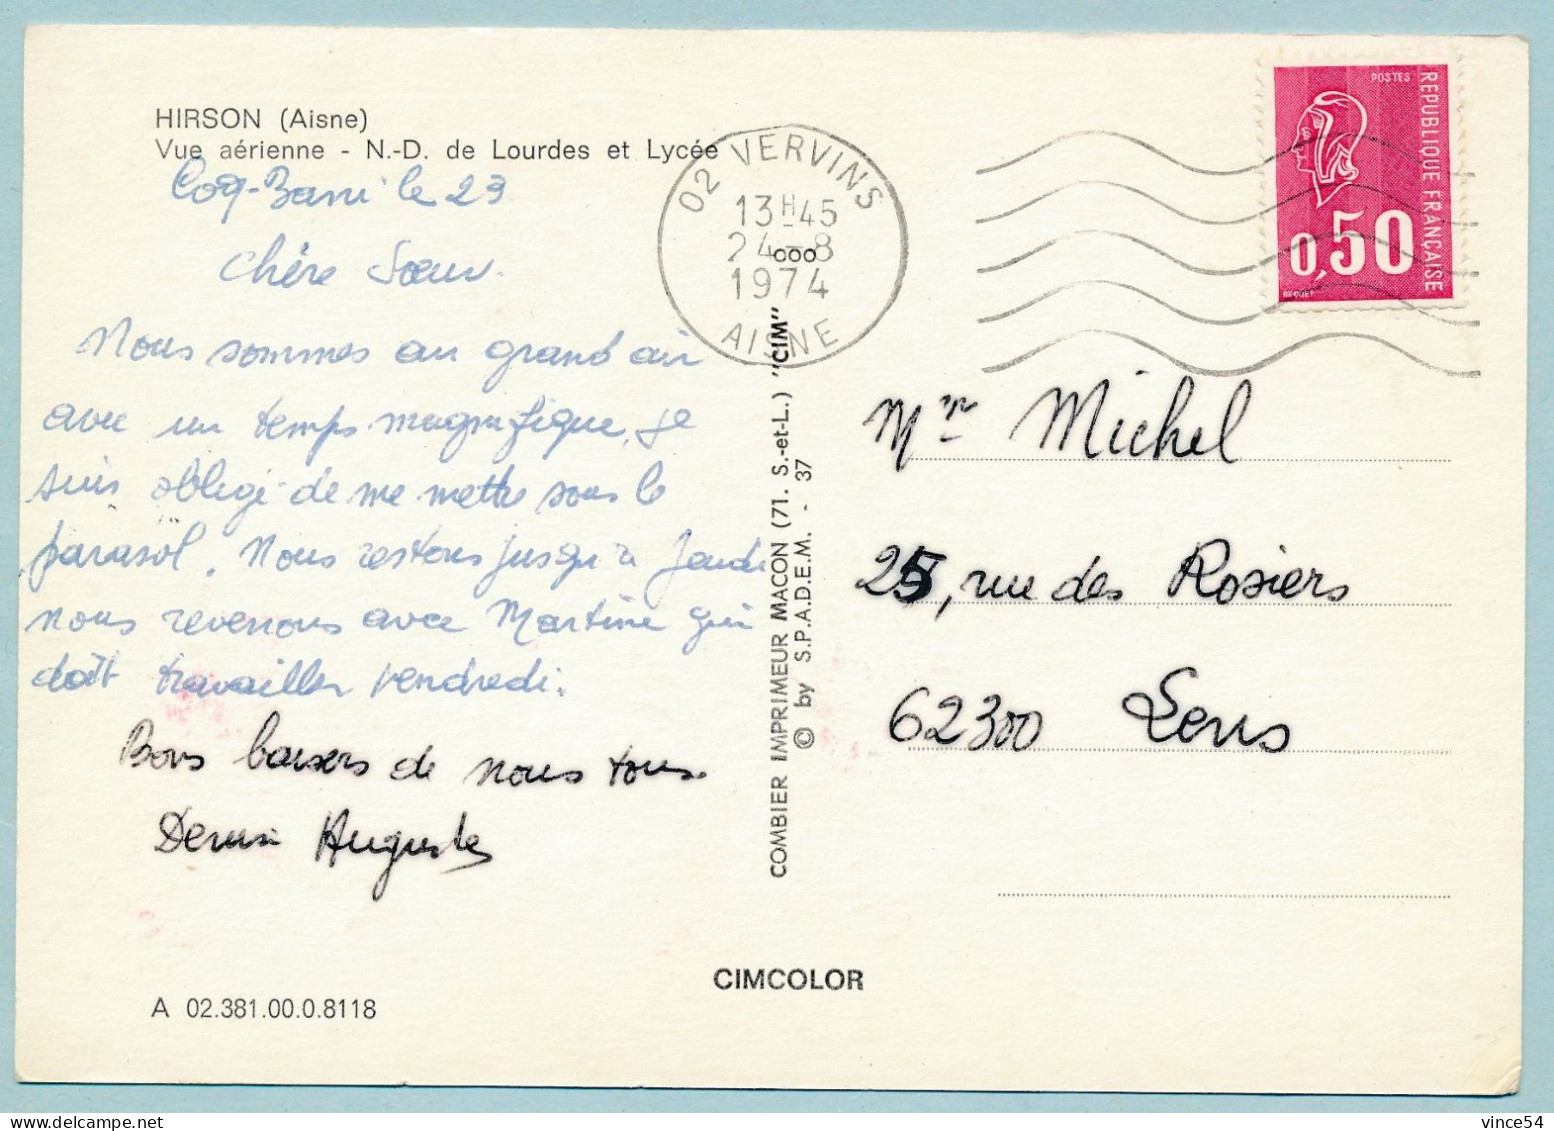 HIRSON (Aisne)
Vue aérienne - N.-D. de Lourdes et Lycée
le 23
Chère Sœur.
Nous sommes au grand air
avec un temps magnifique, je
suis obligé de me mettre sous le
parasol. Nous restons jusqu'à Jeudi
nous revenons avec Martine qui
doit travailler vendredi.
Bons baisers de nous tous.
Auguste
A 02.381.00.0.8118
CIMCOLOR
COMBIER IMPRIMEUR MACON (71. S.-et-L.) "CIM"
© by S.P.A.D.E.M. - 37
02 VERVINS
13H45
24-8
1974
AISNE
000
POSTES
REPUBLIQUE FRANÇAISE
0,50
BEQUET
Mr Michel
25, rue des Rosiers
62300 Lens
vince54